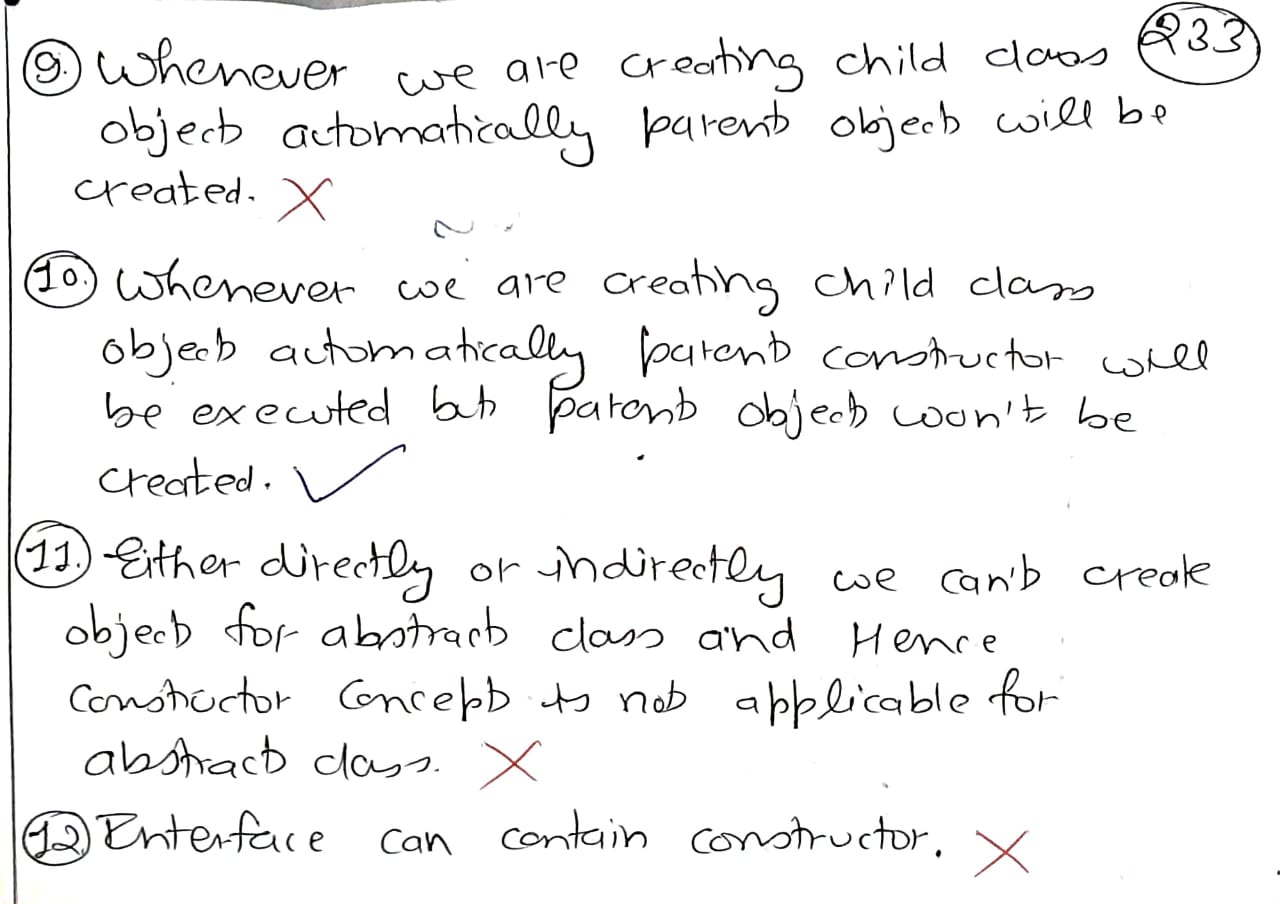 9. Whenever we are creating child class 233
object automatically parent object will be
created. ✗
10. Whenever we are creating child class
object automatically parent constructor will
be executed but parent object won't be
created. ✓
11. Either directly or indirectly we can't create
object for abstract class and Hence
Constructor Concept is not applicable for
abstract class. ✗
12. Interface can contain constructor. ✗